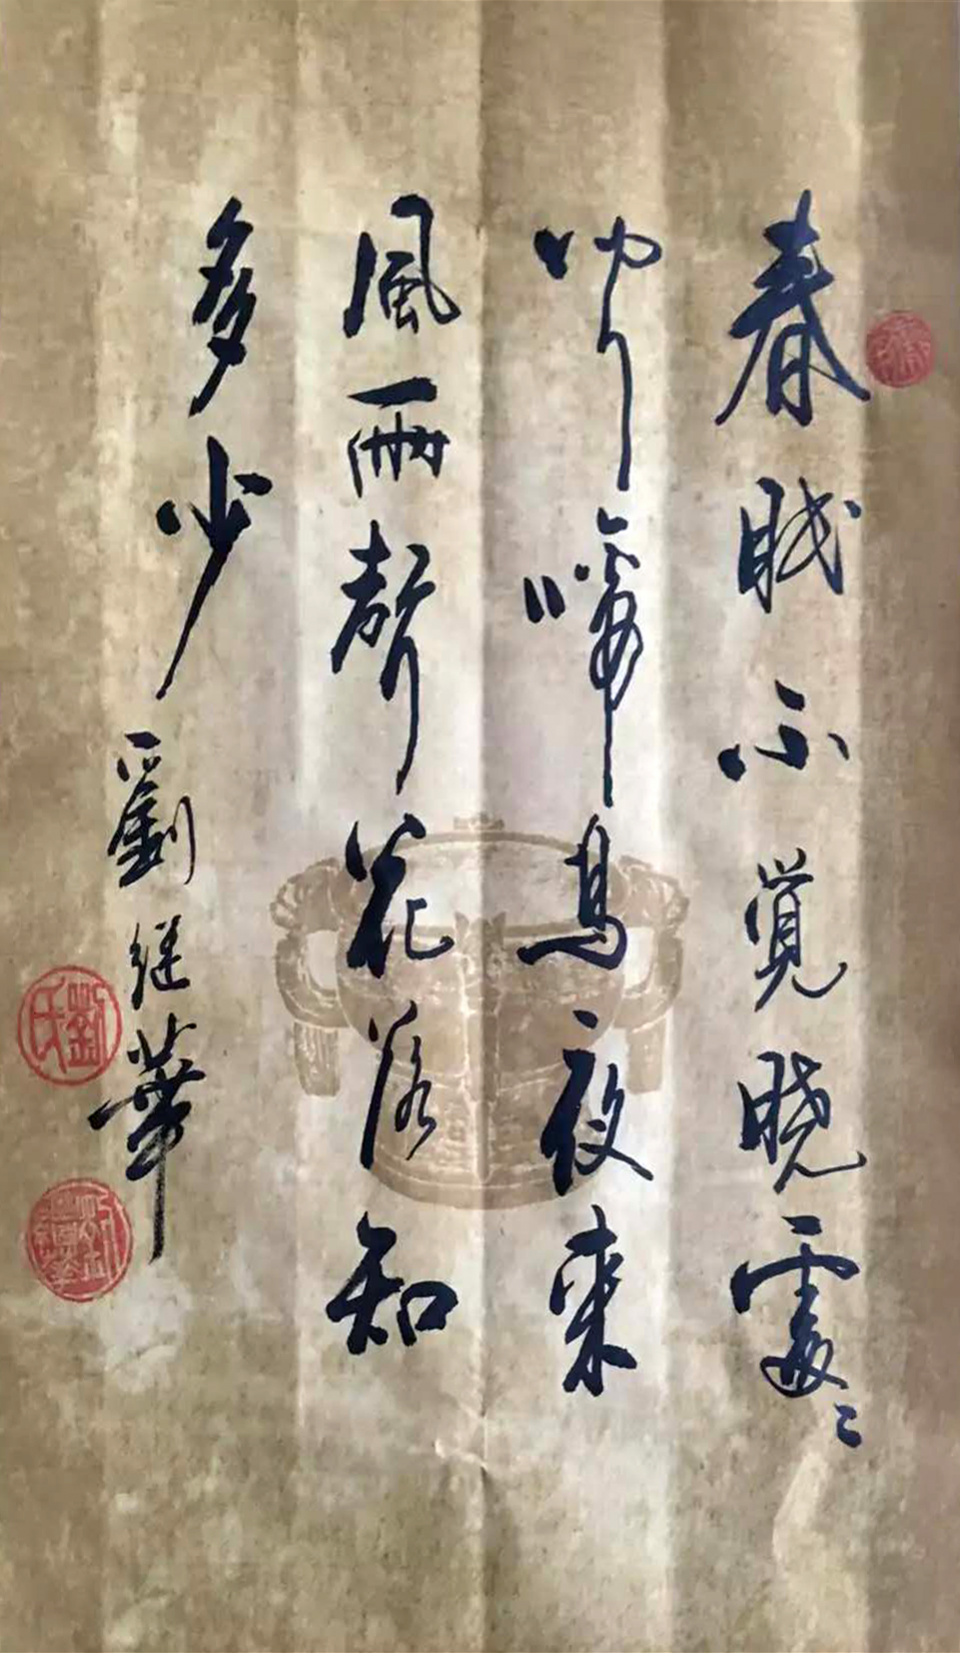 春眠不覺曉處々
聞啼鳥夜來
風雨聲花落知
多少
劉继華
劉氏